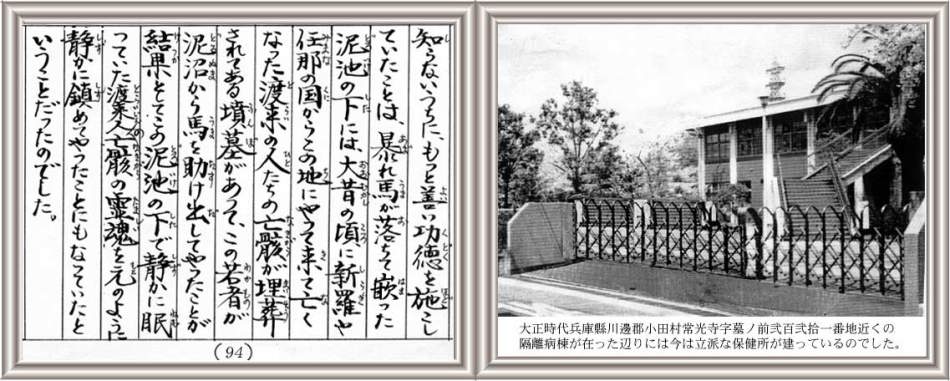 知らないうちに、もっと善い功徳を施こし
ていたことは、暴れ馬が落ちて嵌った
泥池の下には、大昔の頃に新羅や
任那の国からこの地にやって来て亡く
なった渡来の人たちの亡骸が埋葬
されてある墳墓があって、この若者が
泥沼から馬を助け出してやったことが
結果としてこの泥池の下で静かに眠
っていた渡来人亡骸の霊魂を元のように
静かに鎮めてやったことにもなっていたと
いうことだったのでした。
(94)
大正時代兵庫縣川邊郡小田村常光寺字墓ノ前弐百弐拾一番地近くの
隔離病棟が在った辺りには今は立派な保健所が建っているのでした。